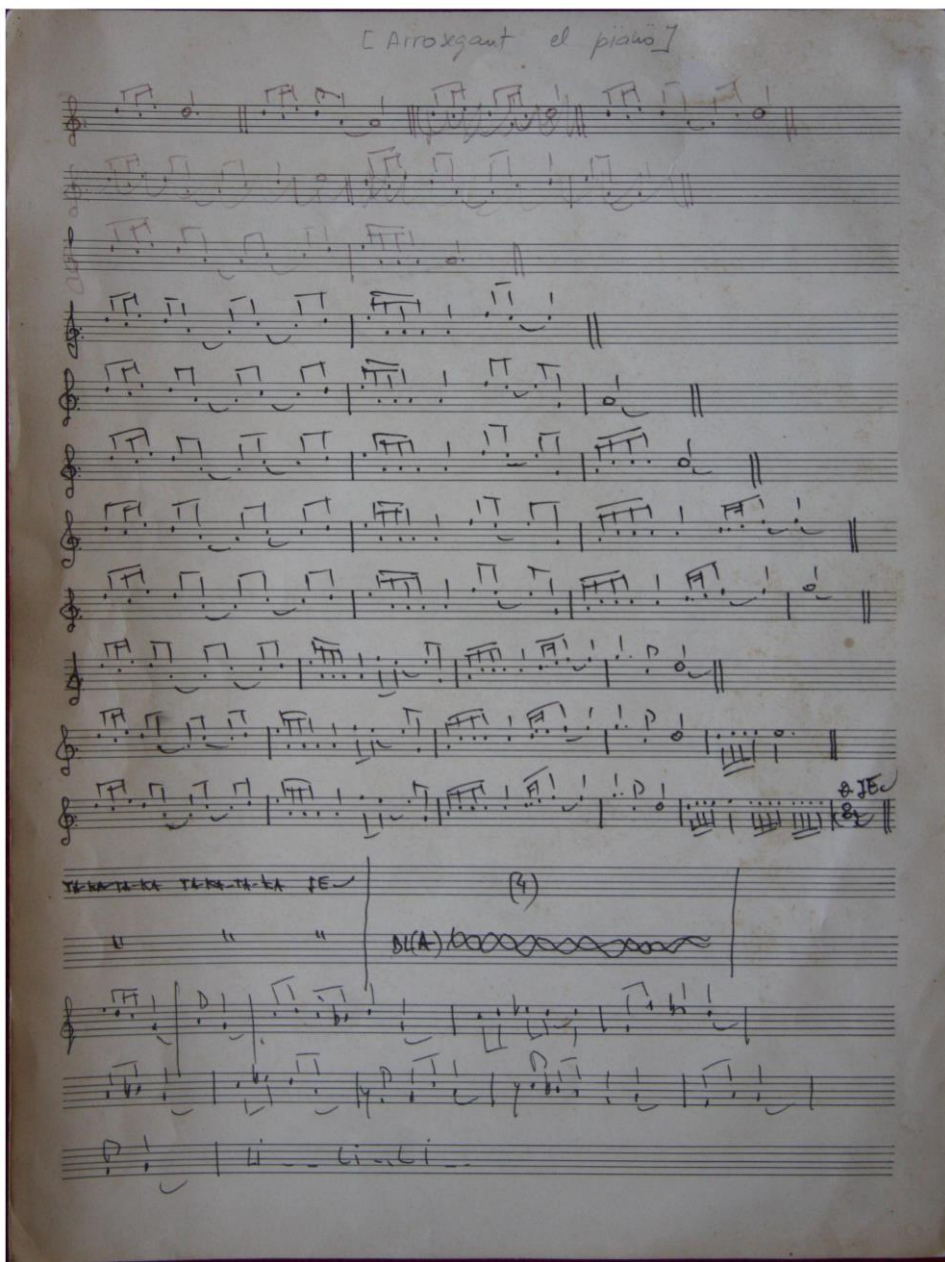 [Arrossegant el piano]
JE
TA-KA-TA-KA TA-KA-TA-KA JE
(4)
" " "
DL(A)
Li -- Li -- Li --